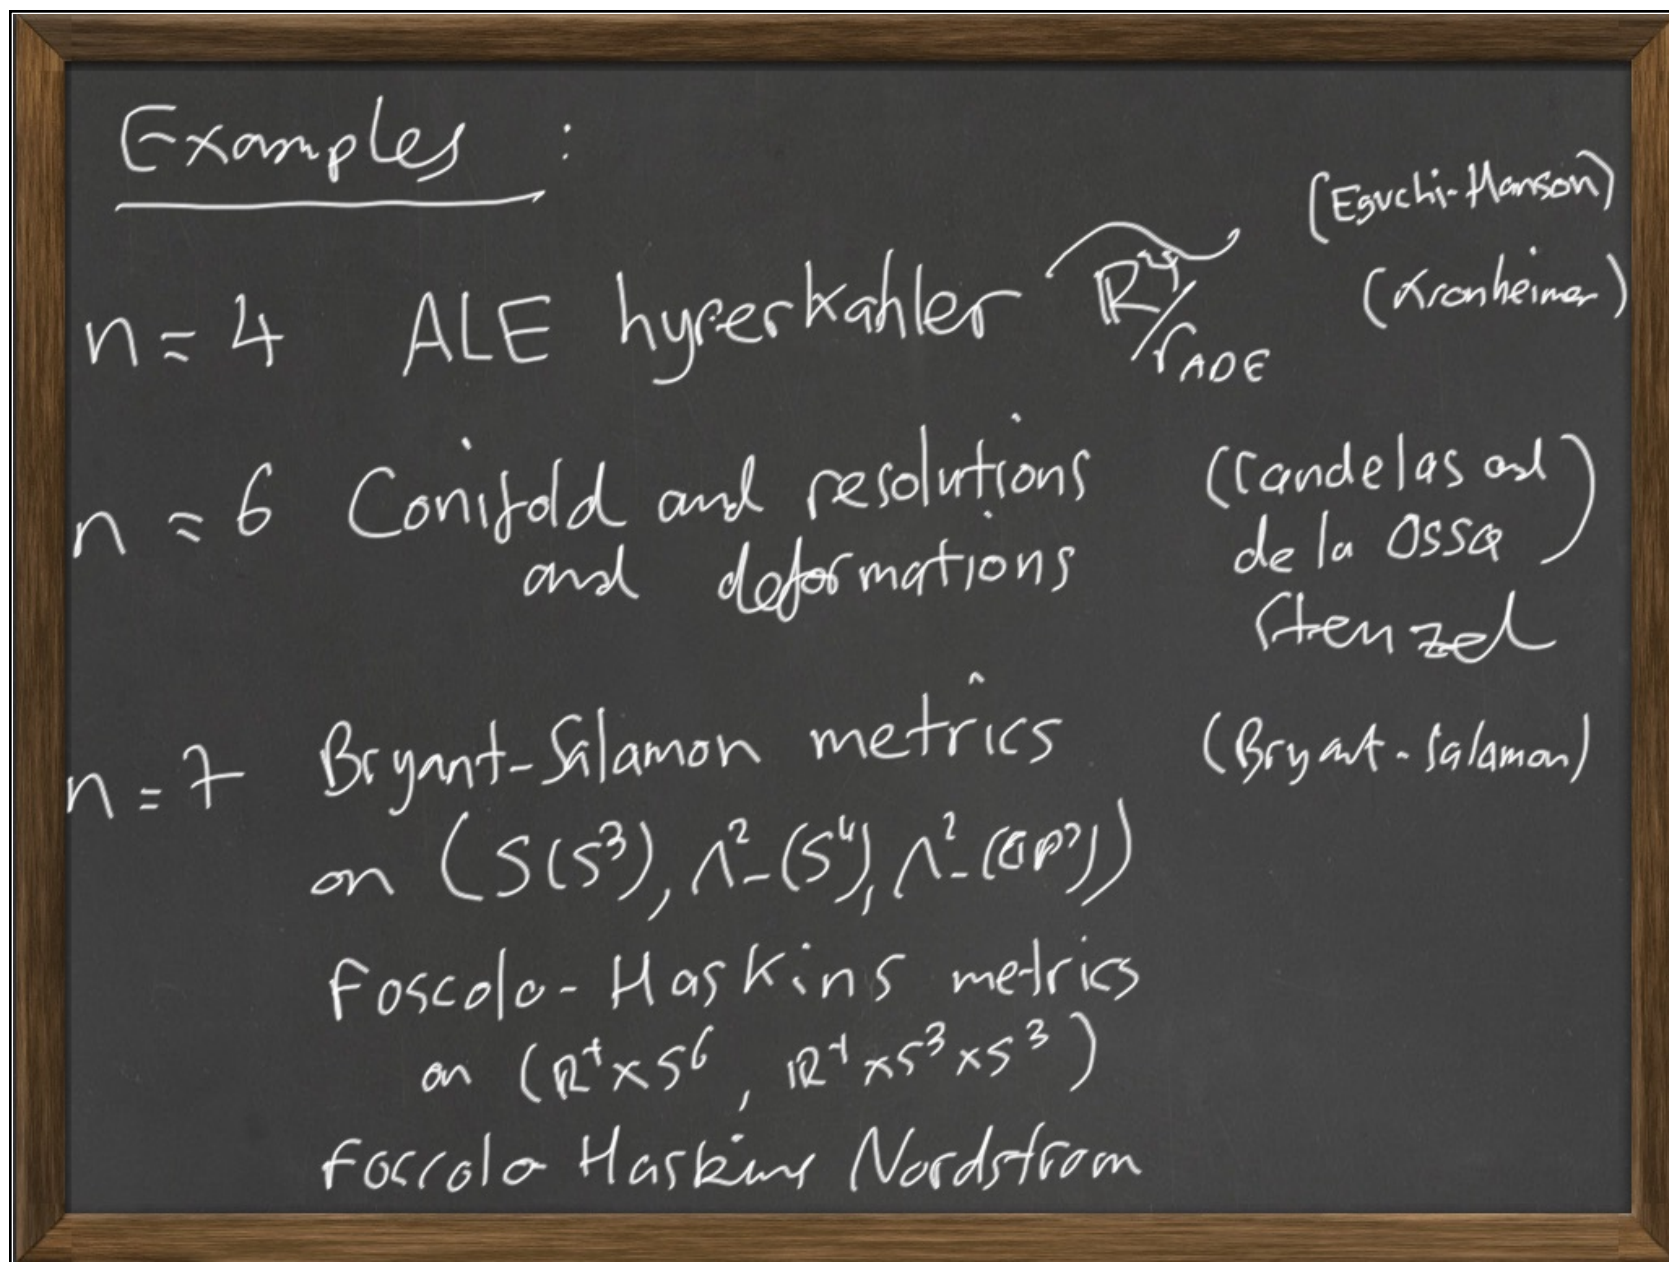 Examples :
(Eguchi-Hanson)
n = 4 ALE hyperkahler R⁴/Γ_ADE (Kronheimer)
n = 6 Conifold and resolutions (Candelas and
and deformations de la Ossa)
Stenzel
n = 7 Bryant-Salamon metrics (Bryant-Salamon)
on (S(S³), Λ²₋(S⁴), Λ²₋(CP²))
Foscolo-Haskins metrics
on (R⁺×S⁶, R⁺×S³×S³)
Foscolo Haskins Nordstrom